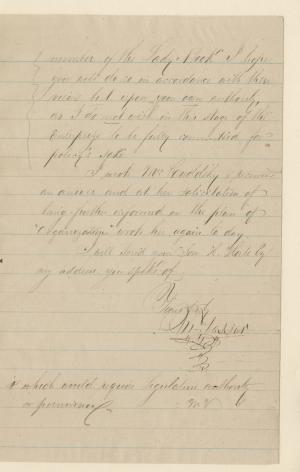 member of the Lady I hope
you will do so in accordance with these
views but upon your own authority
as I do not wish in this stage of the
Enterprize to be fully committed for
policy's sake
I wrote Mrs
an answer and at her solicitation of
being further informed on the plan of
"Organization" wrote her again to day.
I will send you Hon H. by
my address you spoke of.
Yr
which would require legislative authority
or
M V